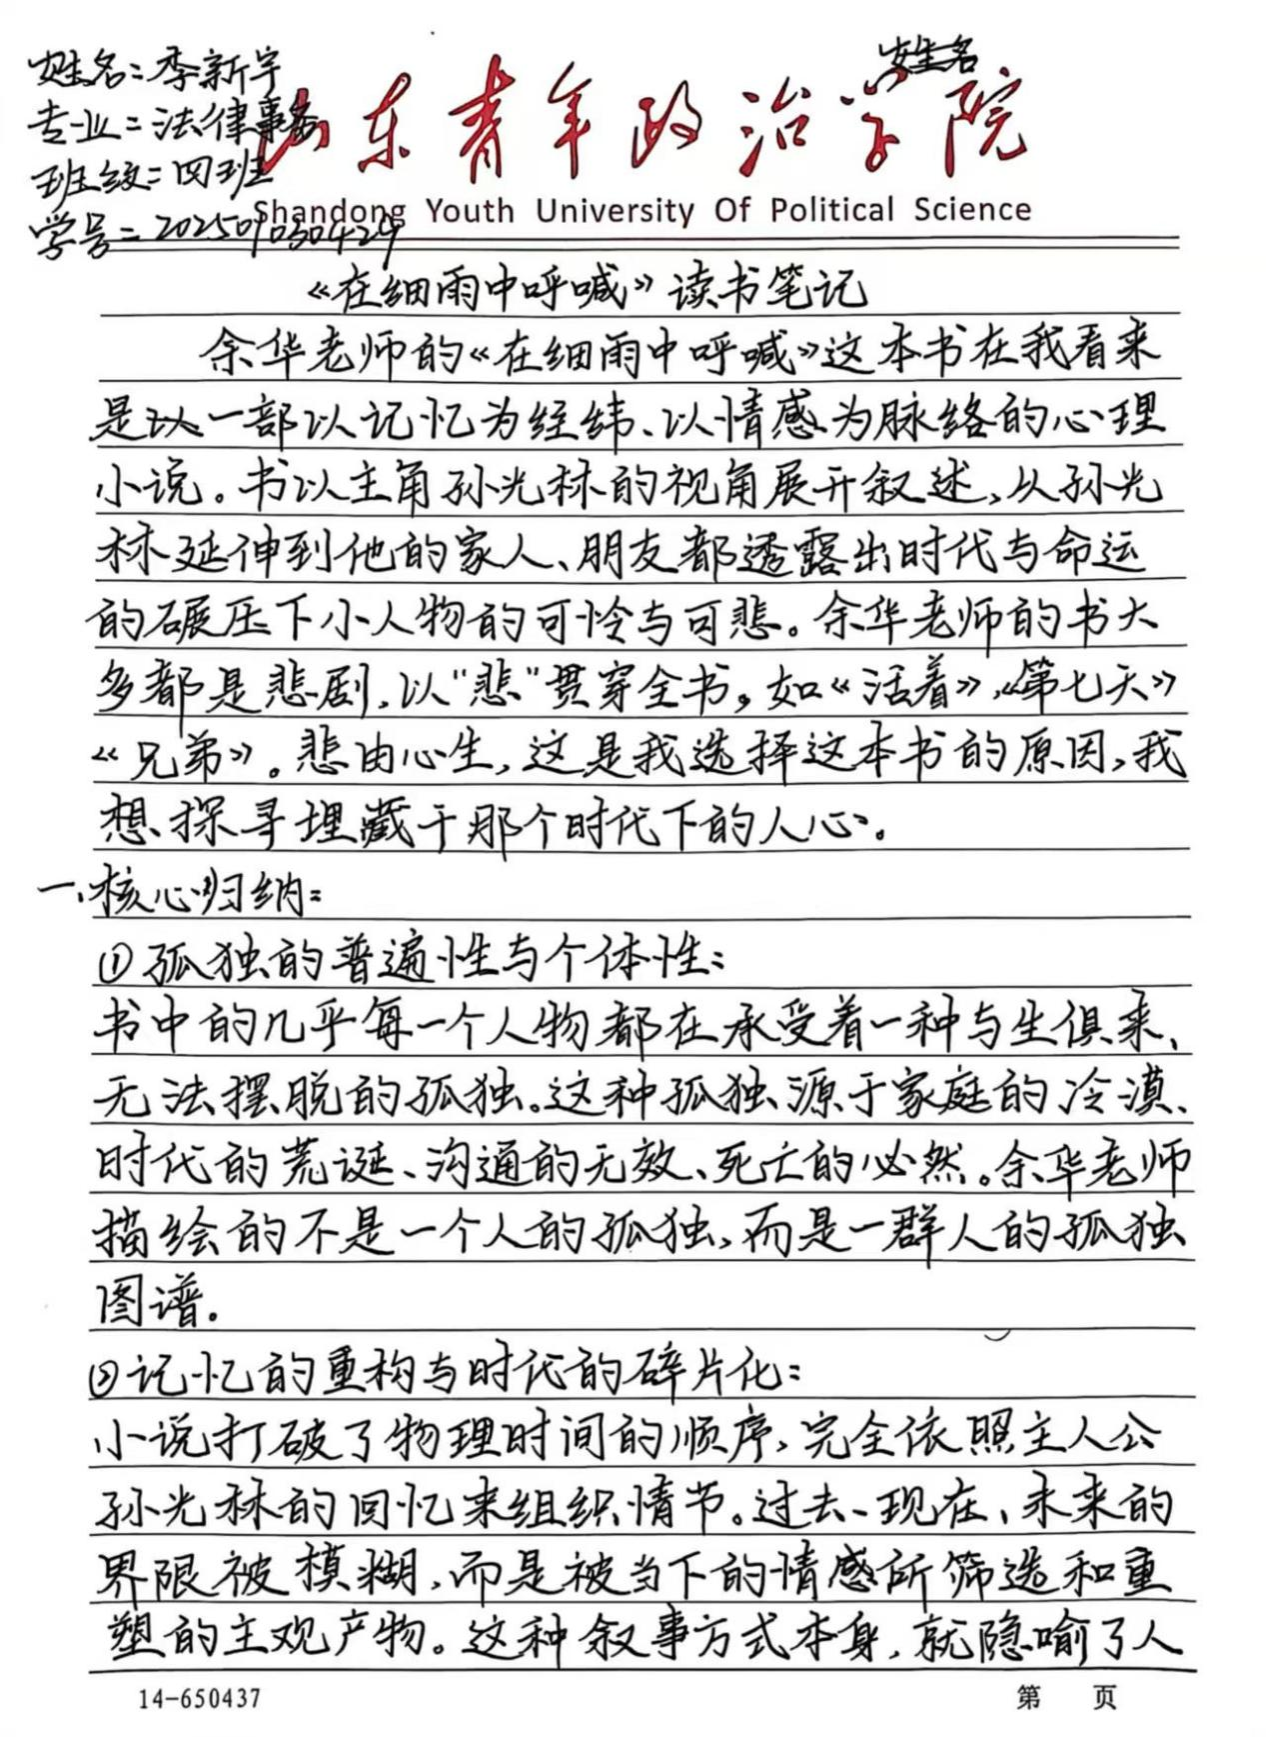 姓名：李新宇
姓名
专业：法律事务
班级：四班
学号：202509030424
山东青年政治学院
Shandong Youth University Of Political Science
《在细雨中呼喊》读书笔记
余华老师的《在细雨中呼喊》这本书在我看来
是一部以记忆为经纬、以情感为脉络的心理
小说。书以主角孙光林的视角展开叙述，从孙光
林延伸到他的家人、朋友都透露出时代与命运
的碾压下小人物的可怜与可悲。余华老师的书大
多都是悲剧，以"悲"贯穿全书。如《活着》，《第七天》
《兄弟》。悲由心生，这是我选择这本书的原因，我
想探寻埋藏于那个时代下的人心。
一、核心归纳：
①孤独的普遍性与个体性：
书中的几乎每一个人物都在承受着一种与生俱来、
无法摆脱的孤独。这种孤独源于家庭的冷漠、
时代的荒诞、沟通的无效、死亡的必然。余华老师
描绘的不是一个人的孤独，而是一群人的孤独
图谱。
②记忆的重构与时代的碎片化：
小说打破了物理时间的顺序，完全依照主人公
孙光林的回忆来组织情节。过去、现在、未来的
界限被模糊，而是被当下的情感所筛选和重
塑的主观产物。这种叙事方式本身，就隐喻了人
14-650437
第 页